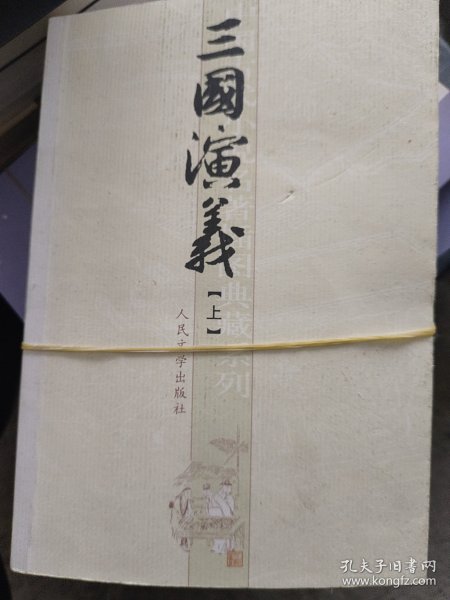 三國演義
【上】
人民文学出版社
典藏系列
孔夫子旧书网
www.kongfz.com